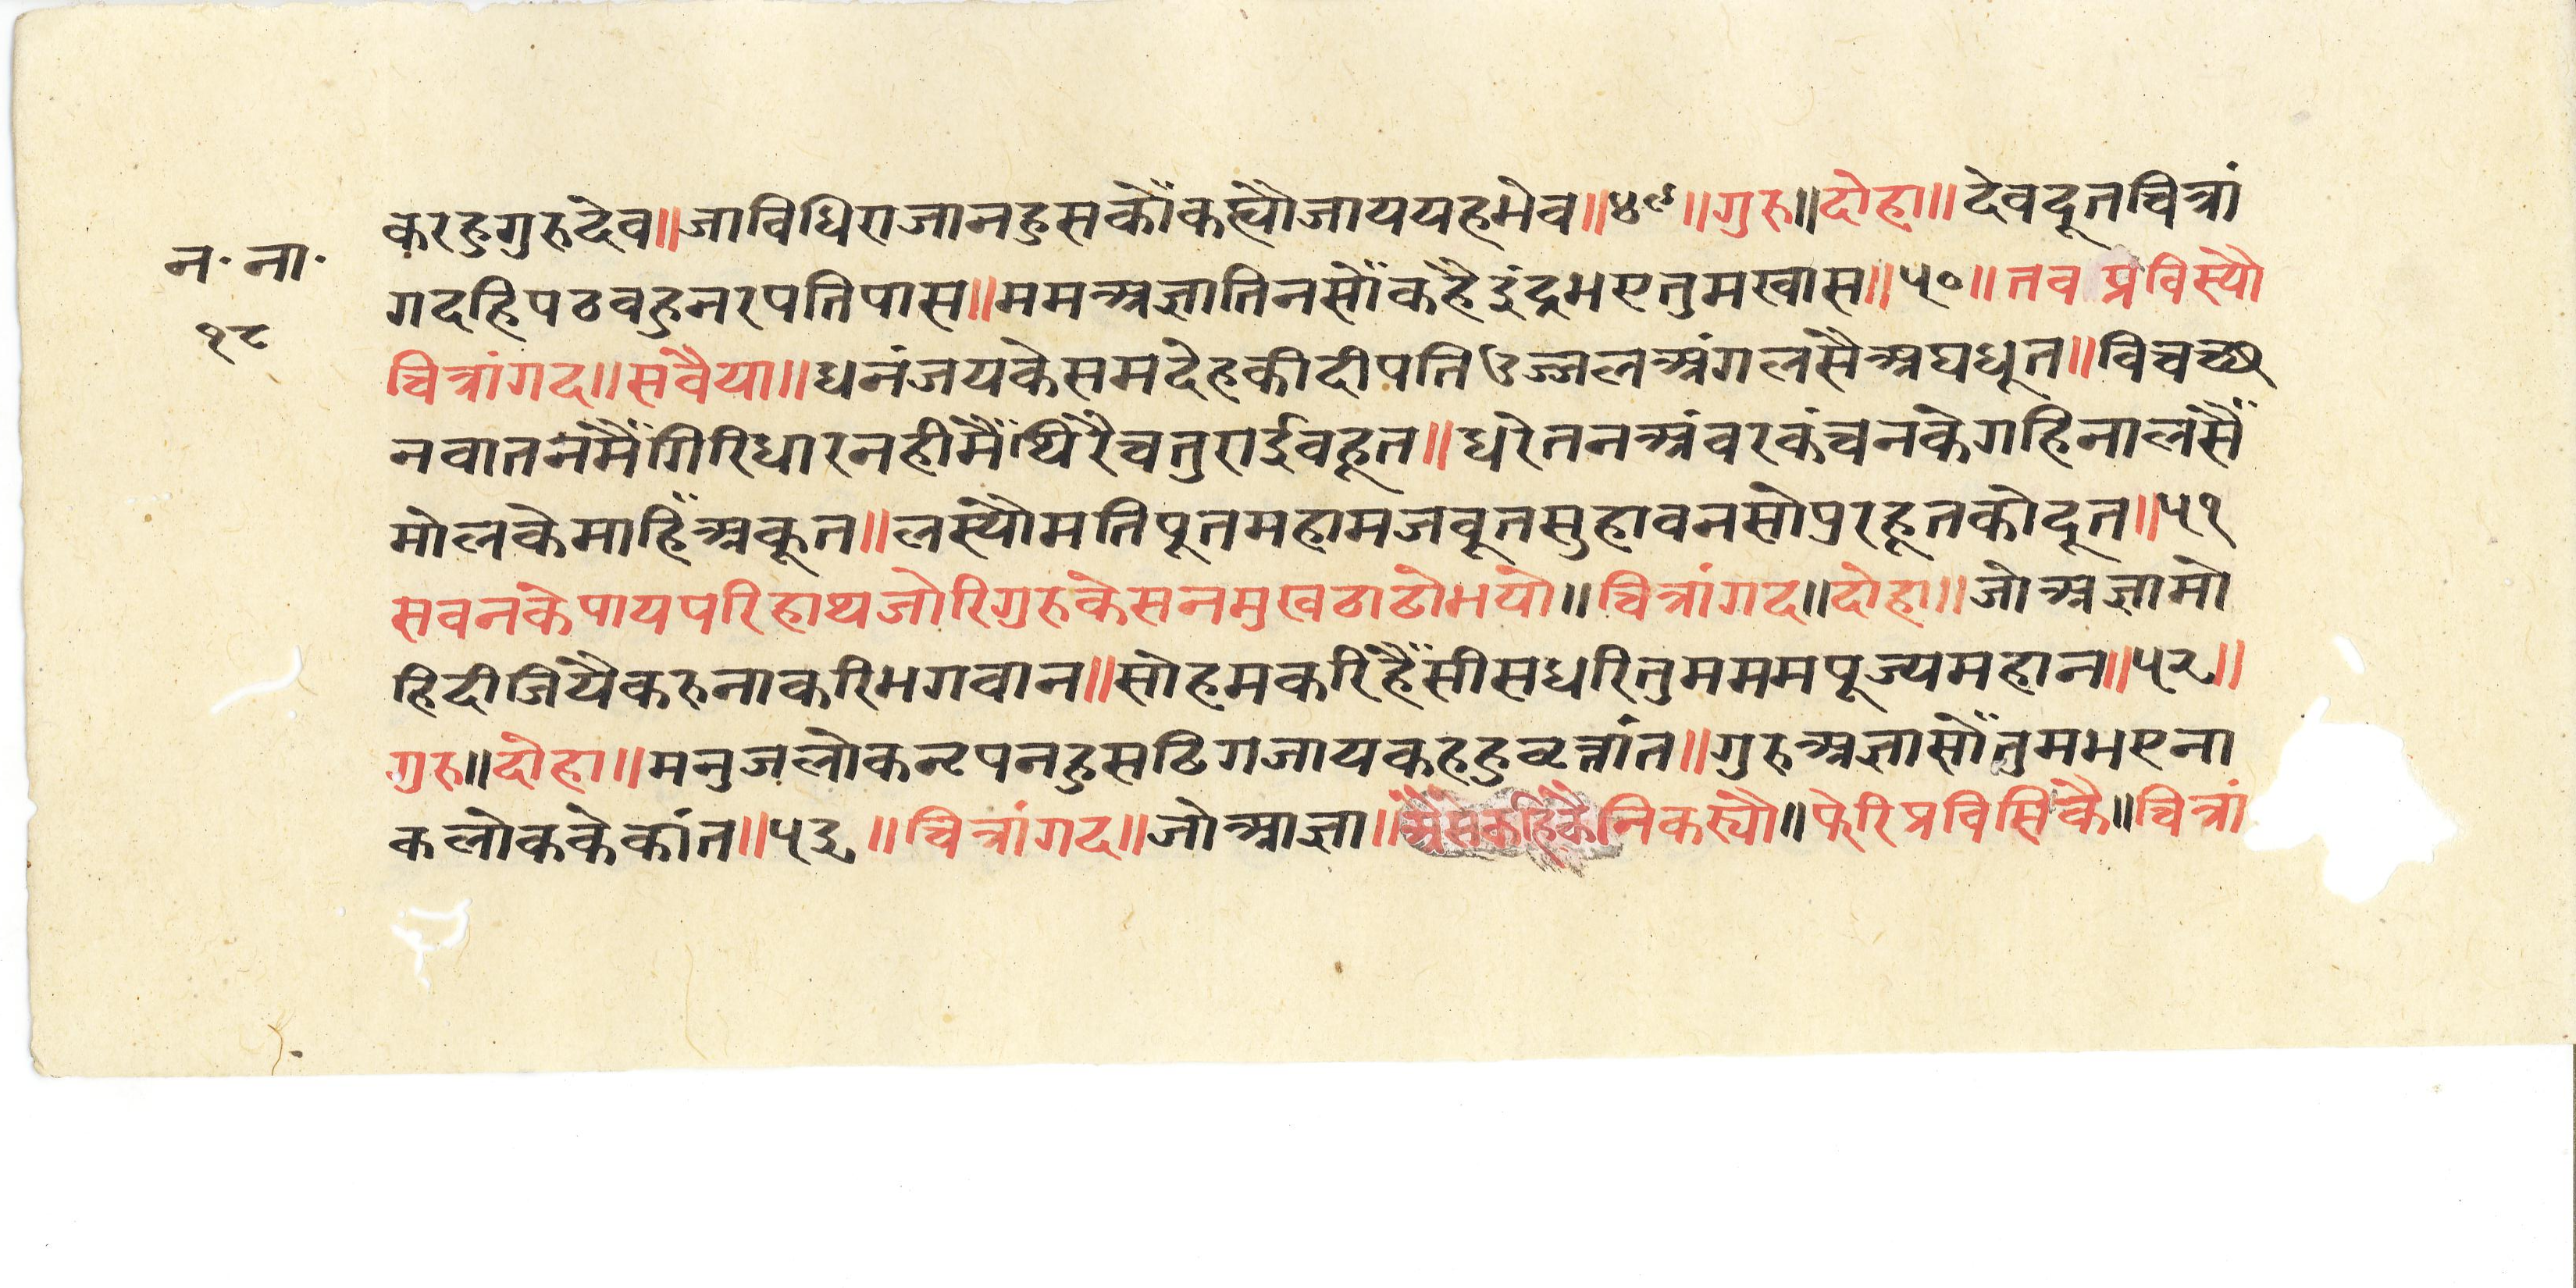 न॰ ना॰
१८
करहुगुरुदेव॥जाविधिराजानहुसकौंकह्यौजाययहमेव॥४९॥गुरु॥दोहा॥देवदूतचित्रां
गदहिपठवहुनरपतिपास॥ममअज्ञातिनसौंकहैइंद्रभएतुमखास॥५०॥तव प्रविस्यौ
चित्रांगद॥सवैया॥धनंजयकेसमदेहकीदीपतिउज्जलअंगलसैअघधूत॥विचच्छ
नवातनमैंगिरिधारनहीमैंथिरैचतुराईवहूत॥धरेतनअंवरकंचनकेगहिनालसैं
मोलकेमाहिंअकूत॥लस्यौमतिपूतमहामजवूतसुहावनसोपुरहूतकोदूत॥५१
सवनकेपायपरिहाथजोरिगुरुकेसनमुखठाढोभयो॥चित्रांगद॥दोहा॥जोअज्ञामो
हिदीजियैकरुनाकरिभगवान॥सोहमकरिहैंसीसधरितुमममपूज्यमहान॥५२॥
गुरु॥दोहा॥मनुजलोकनृपनहुसढिगजायकहहुवृत्तांत॥गुरुअज्ञासौंतुमभएना
कलोककेकांत॥५३॥चित्रांगद॥जोआज्ञा॥अैसैंकहिकैंनिकस्यौ॥फेरिप्रविसिकै॥चित्रां